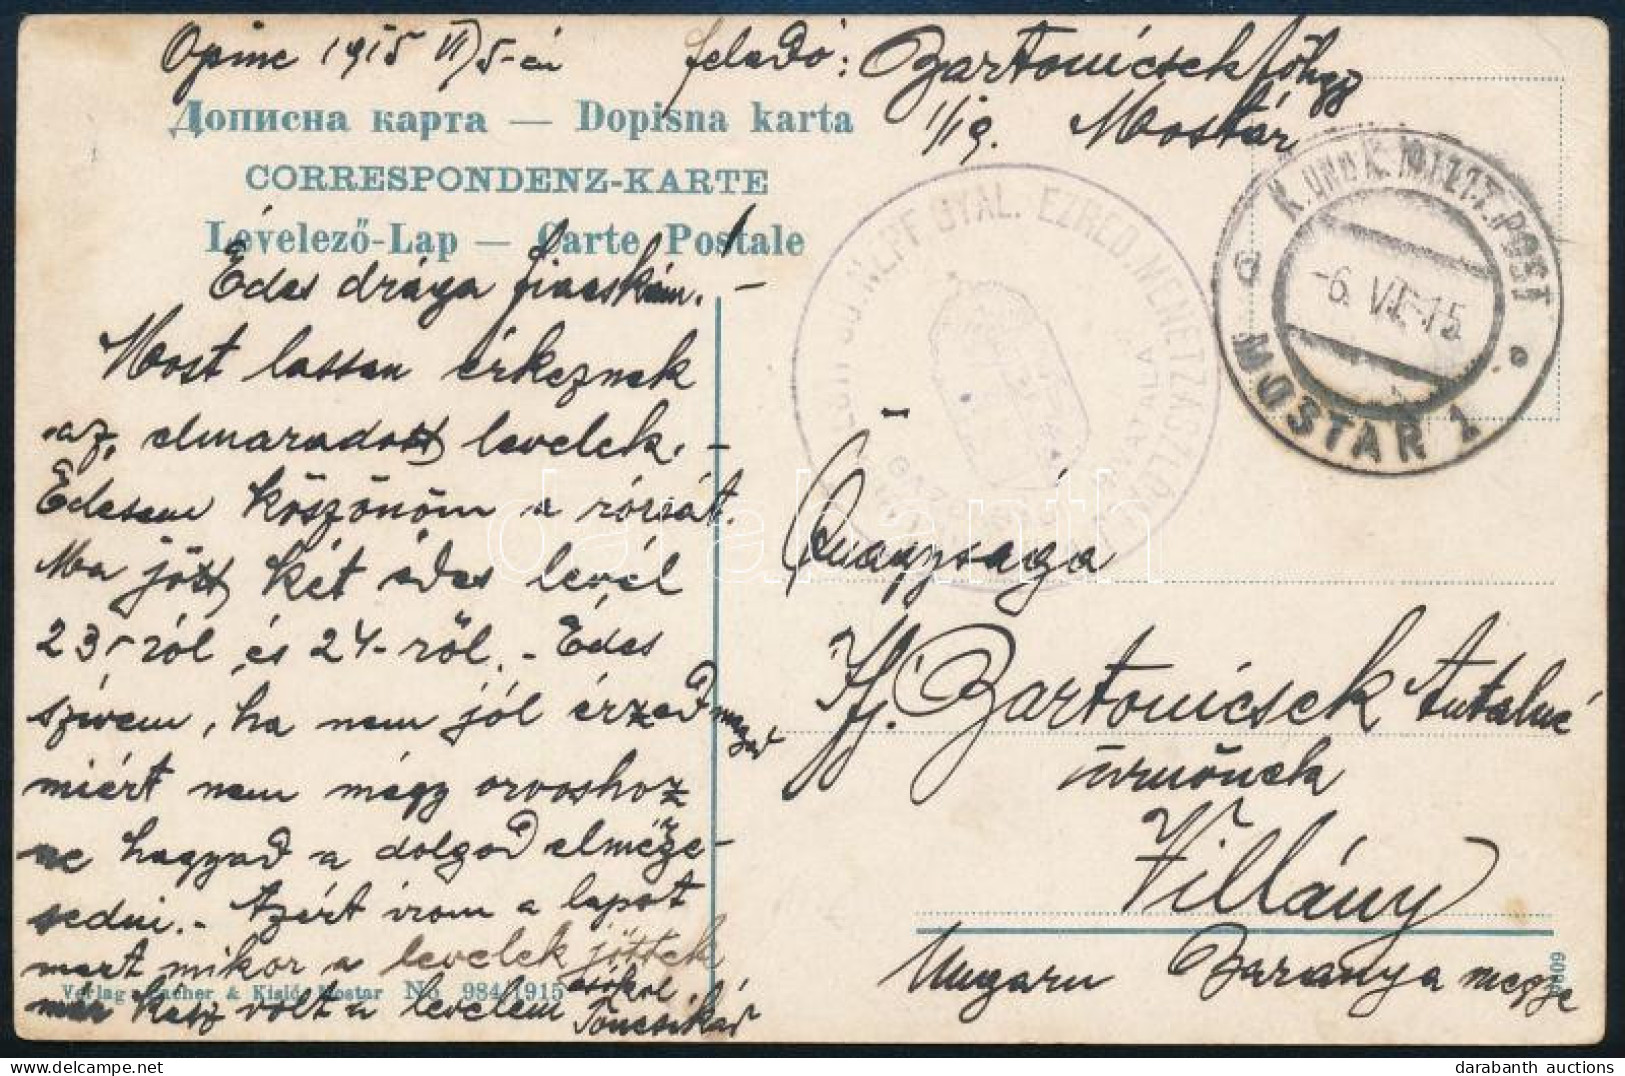 Opine 1915 VI/5-én feladó: Bartonicsek főhgy
1/19. Mostár
Дописна карта — Dopisna karta
CORRESPONDENZ-KARTE
Levelező-Lap — Carte Postale
Édes drága fiacskám! -
Most lassan érkeznek
az elmaradott levelek. -
Édesem köszönöm a rózsát.
Ma jött két édes levél
23-ról és 24-ről. - Édes
szívem, ha nem jól érzed magad
miért nem mégy orvoshoz
ne hagyad a dolgod elmérge-
sedni. - Azért irom a lapot
mert mikor a levelek jöttek
már kész volt a levelem csókol
Toncsikád
Verlag Pacher & Kisić Mostar No 984 1915
K. UND K. MILIT. POST
-6. VI. 15
MOSTAR 1
NÉPF. GYAL. EZRED. MENETZÁSZLÓALJ
Őnagysága
Ifj. Bartonicsek Antalné
úrnőnek
Villány
Ungarn Baranya megye
6609
darabanth
darabanth auctions